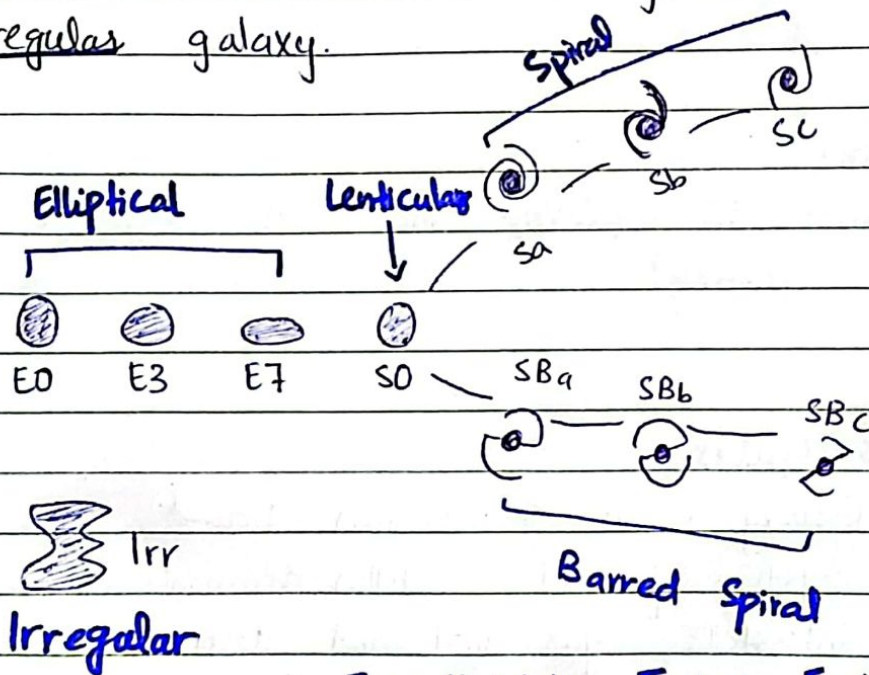 egular galaxy.
Spiral
Sc
Sb
Sa
Elliptical
Lenticular
E0 E3 E7 S0
SBa
SBb
SBc
Irr
Barred Spiral
Irregalar